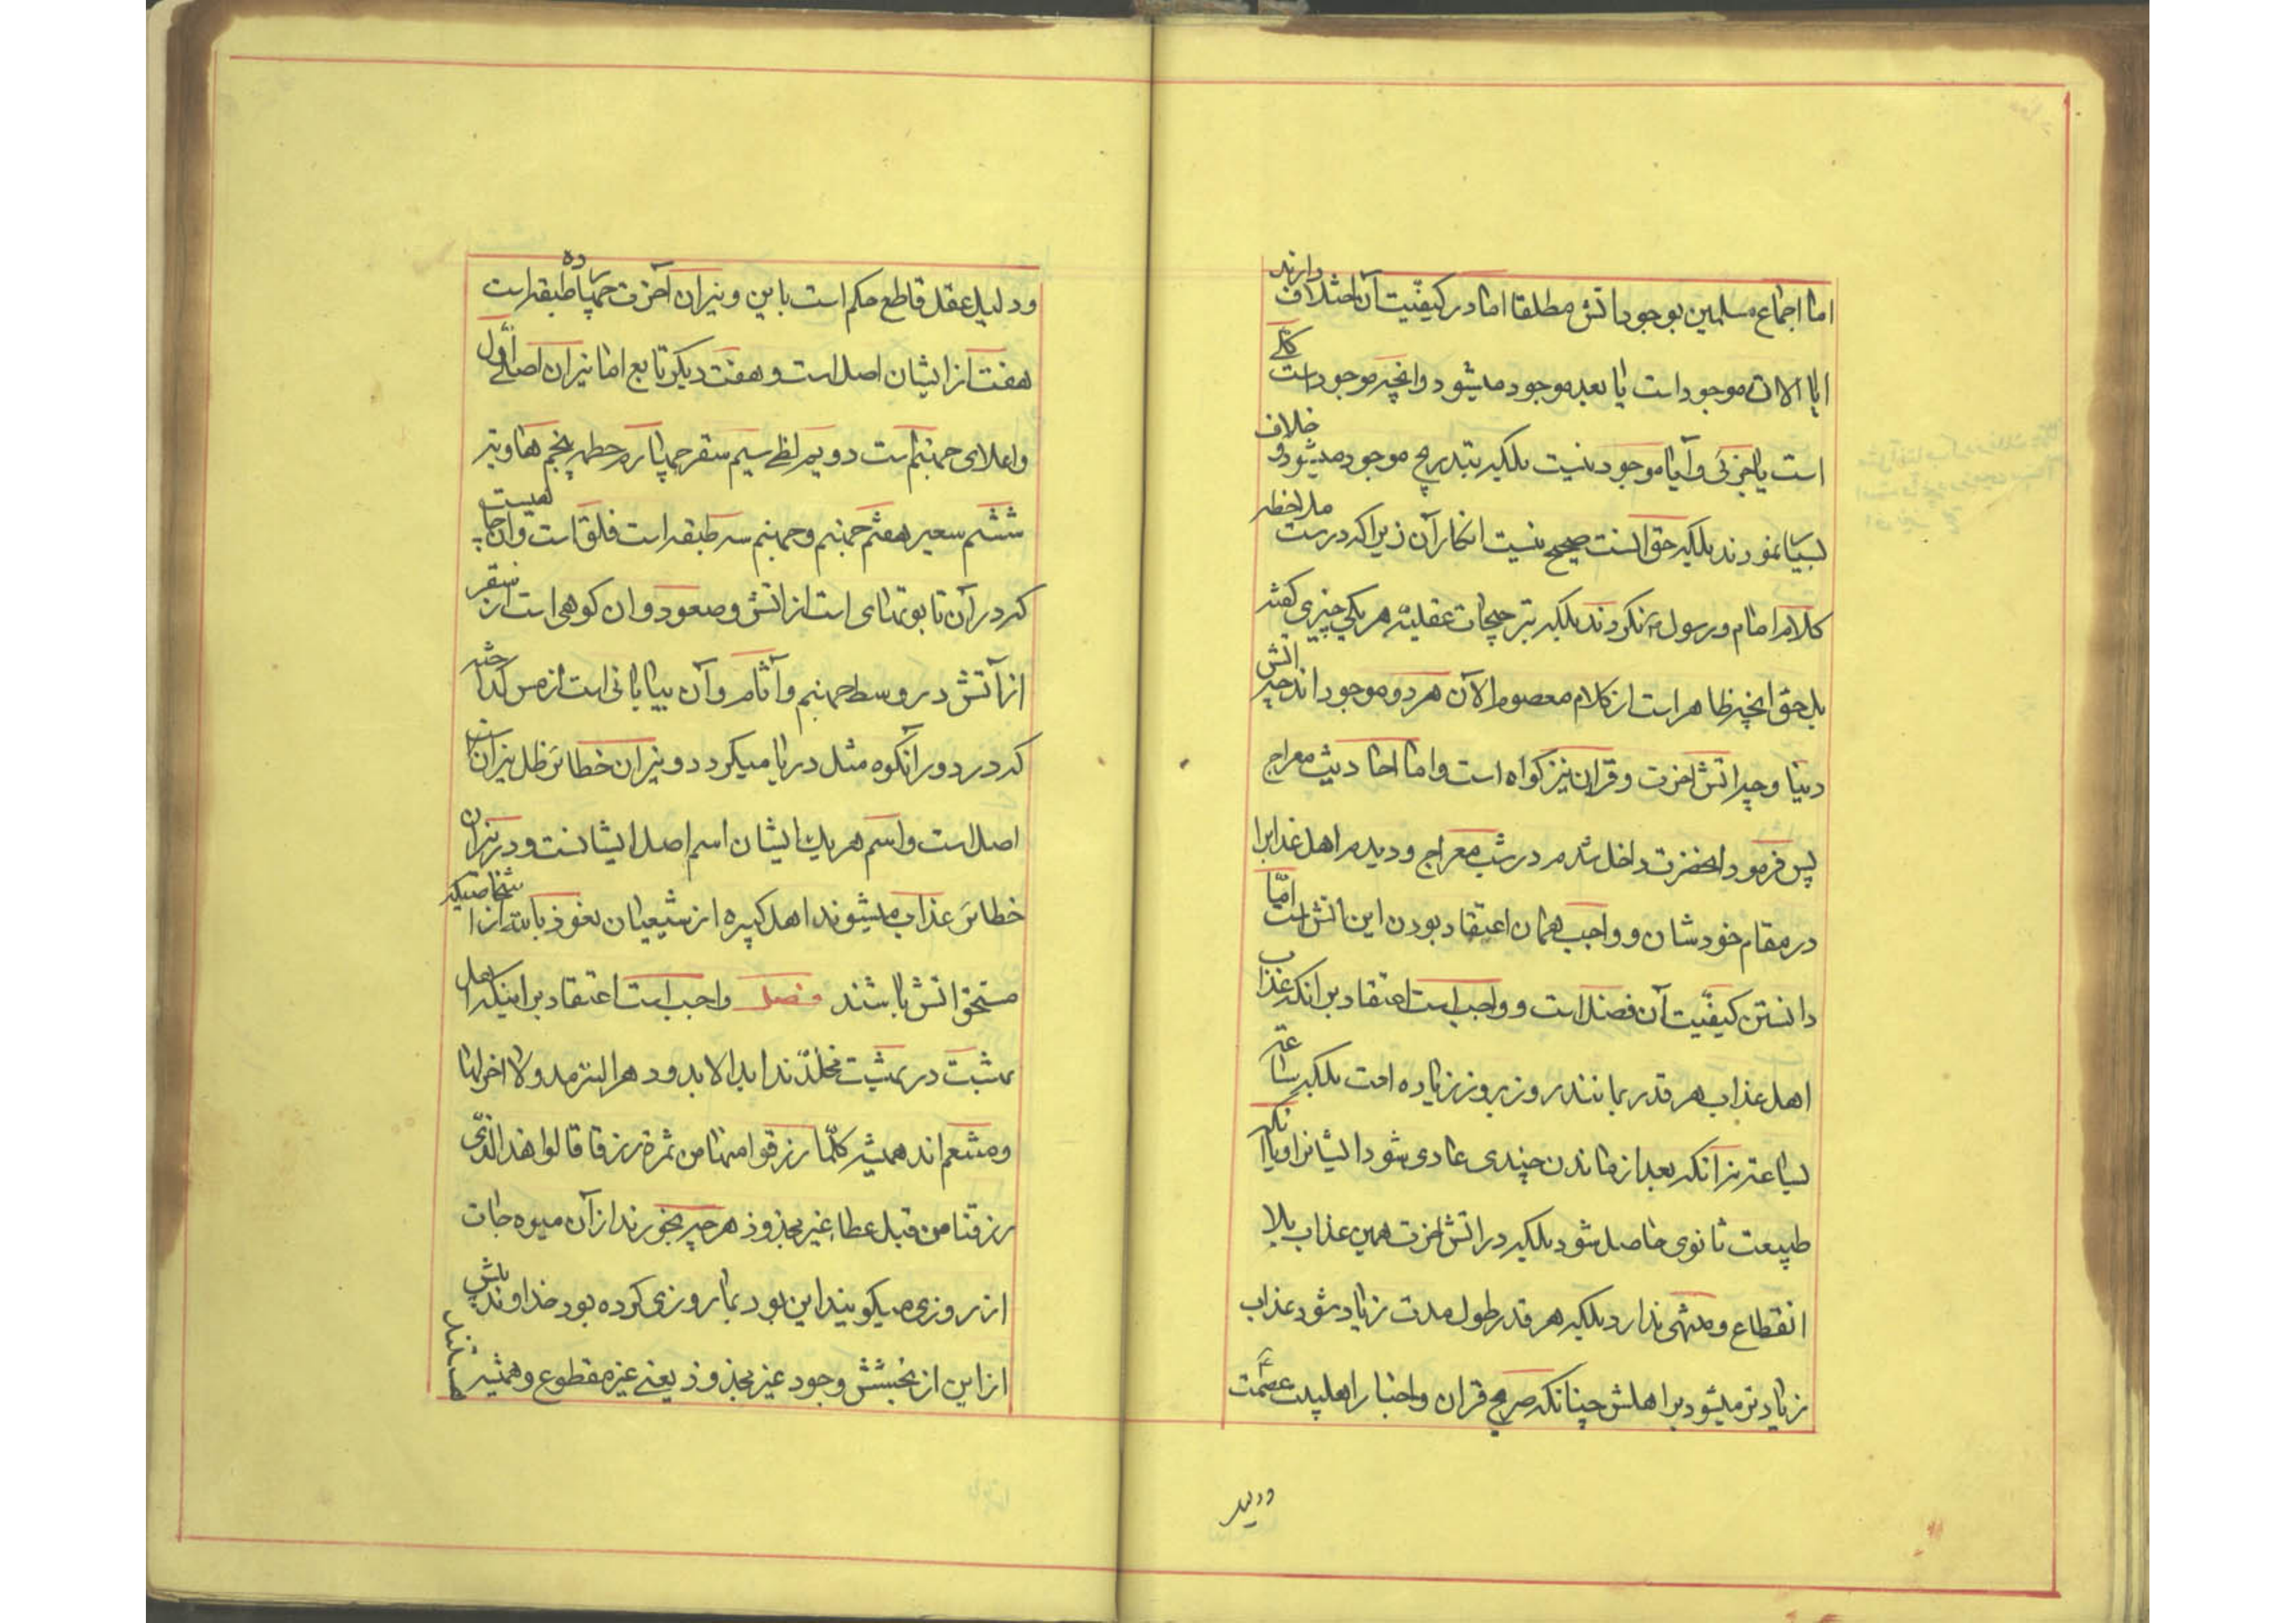 اما اجماع مسلمین بوجود اتش مطلقا اما در کیفیّت آن اختلاف دارند
ایا الان موجود است یا بعد موجود میشود وانچه موجود است کلّی
است یا جزئی و آیا موجود نیست بلکه بتدریج موجود میشود و خلاف
بسیار نمودند بلکه حق انست صحیح نیست انکار آن زیرا که درست ملاحظه
کلام امام و رسول نکردند بلکه بترجیحات عقلیّه هر یکی چیزی گفته
بل حق انچه ظاهر است از کلام معصوم الآن هر دو موجود اند چه اتش
دنیا و چه اتش اخرت و قران نیز کواه است و اما احادیث معراج
پس فرمود انحضرت داخل شدم در شب معراج و دیدم اهل عذابرا
در مقام خودشان و واجب همان اعتقاد بودن این اتش است امّا
دانستن کیفیّت آن فضل است و واجب است اعتقاد بر انکه عذاب
اهل عذاب هر قدر بمانند روز بروز زیاده است بلکه ساعة
بساعة نه انکه بعد از ماندن چندی عادی شود ایشانرا ویا انکه
طبیعت ثانوی حاصل شود بلکه در اتش اخرت همین عذاب بلا
انقطاع و منتهی ندارد بلکه هر قدر طول مدت زیاد شود عذاب
زیادتر میشود بر اهلش چنانکه صریح قران و اخبار اهلبیت عصمت
ودلیل
ودلیل عقل قاطع حکم است باین و نیران آخرت چهارده طبقه است
هفت از ایشان اصل است و هفت دیکر تابع اما نیران اصلی اوّل
واعلای جهنم است دویم لظی سیم سقر چهارم حطمه پنجم هاویه
ششم سعیر هفتم جهنم و جهنم سه طبقه است فلق است وان چاهیست
که در آن تابوتهای است از اتش و صعود و ان کوهی است از سقر
از آتش در وسط جهنم و آثام و آن بیابانی است از مس کداخته
که در دور آنکوه مثل دریا میکردد و نیران خطائر ظل نیران
اصل است و اسم هر یک از ایشان اسم اصل ایشانست و در نیران
خطائر عذاب میشوند اهل کبیره از شیعیان نعوذ بالله از اشخاصیکه
مستحق اتش باشند فصل واجب است اعتقاد بر اینکه اهل
بهشت در بهشت مخلّدند ابد الابد و دهر البتّه مد ولا اخر لها
ومتنعم اند همیشه کلّما رزقوا منها من ثمرة رزقا قالوا هذا الّذی
رزقنا من قبل عطاء غیر مجذوذ هر چه بخورند از آن میوه جات
از روزی میکویند این بود بما روزی کرده بود خداوند پیش
از این از بخشش وجود غیر مجذوذ یعنی غیر مقطوع و همیشه